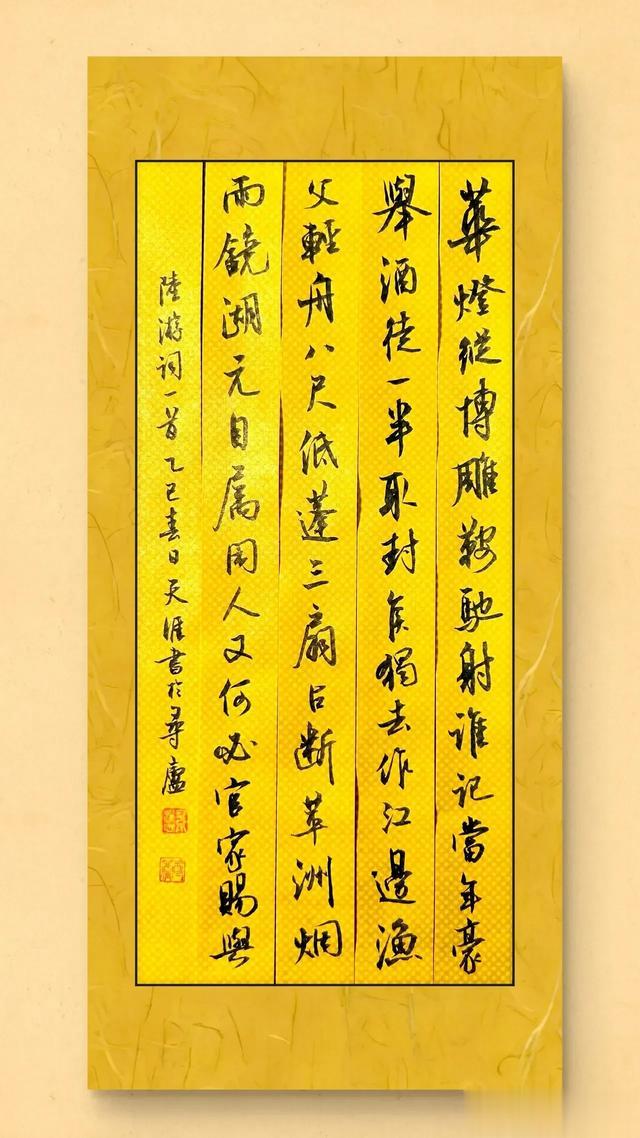 華燈縱博雕鞍馳射誰記當年豪
舉酒徒一半取封侯獨去作江邊漁
父輕舟八尺低蓬三扇占斷苹洲烟
雨鏡湖元自属閑人又何必官家賜與
陸游詞一首乙巳春日天涯書於尋廬